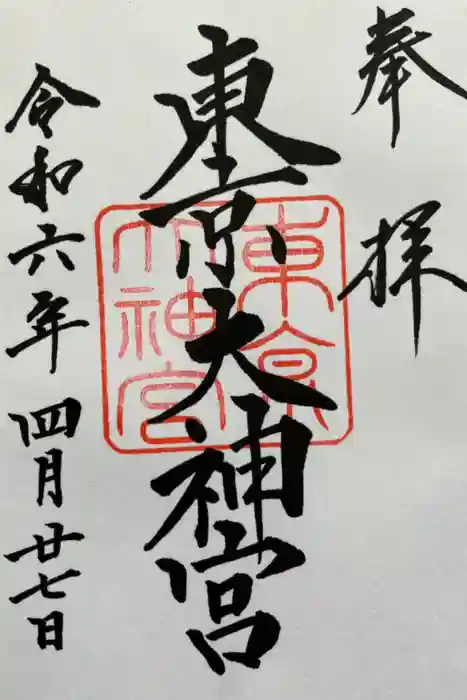 奉拝
東京大神宮
東京
大神宮
令和六年四月廿七日